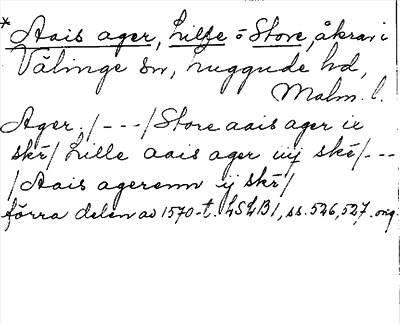 *Aais ager, Lille o Store, åkrar i
Välinge sn, Luggude hd,
Malm. l.
Ager. /---/ Store aais ager ie
skē/ Lille aais ager iiij skē/---
/Aais agerenn ij skē/
förra delen av 1570-t. LSLB1, ss. 526, 527. orig.